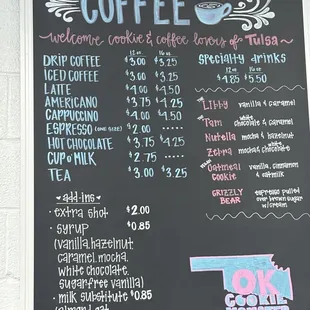 COFFEE
welcome cookie & coffee lovers of Tulsa
12 oz. 16 oz.
DRIP COFFEE $3.00 $3.25
ICED COFFEE $3.00 $3.25
LATTE $4.00 $4.50
AMERICANO $3.75 $4.25
CAPPUCCINO $4.00 $4.50
ESPRESSO (ONE SIZE) $2.00
HOT CHOCOLATE $3.75 $4.25
CUP O' MILK $2.75
TEA $3.00 $3.25
add-ins
• extra shot $2.00
• syrup $0.85
(vanilla, hazelnut,
caramel, mocha,
white chocolate,
sugarfree vanilla)
• milk substitute $0.85
specialty drinks
12 oz 16 oz
$4.85 $5.50
Libby vanilla & caramel
Tam white chocolate & caramel
Nutella mocha & hazelnut
Zebra mocha & white chocolate
Oatmeal Cookie vanilla, cinnamon & oatmilk
GRIZZLY BEAR espresso pulled over brown sugar w/cream
OK
COOKIE
MONSTER